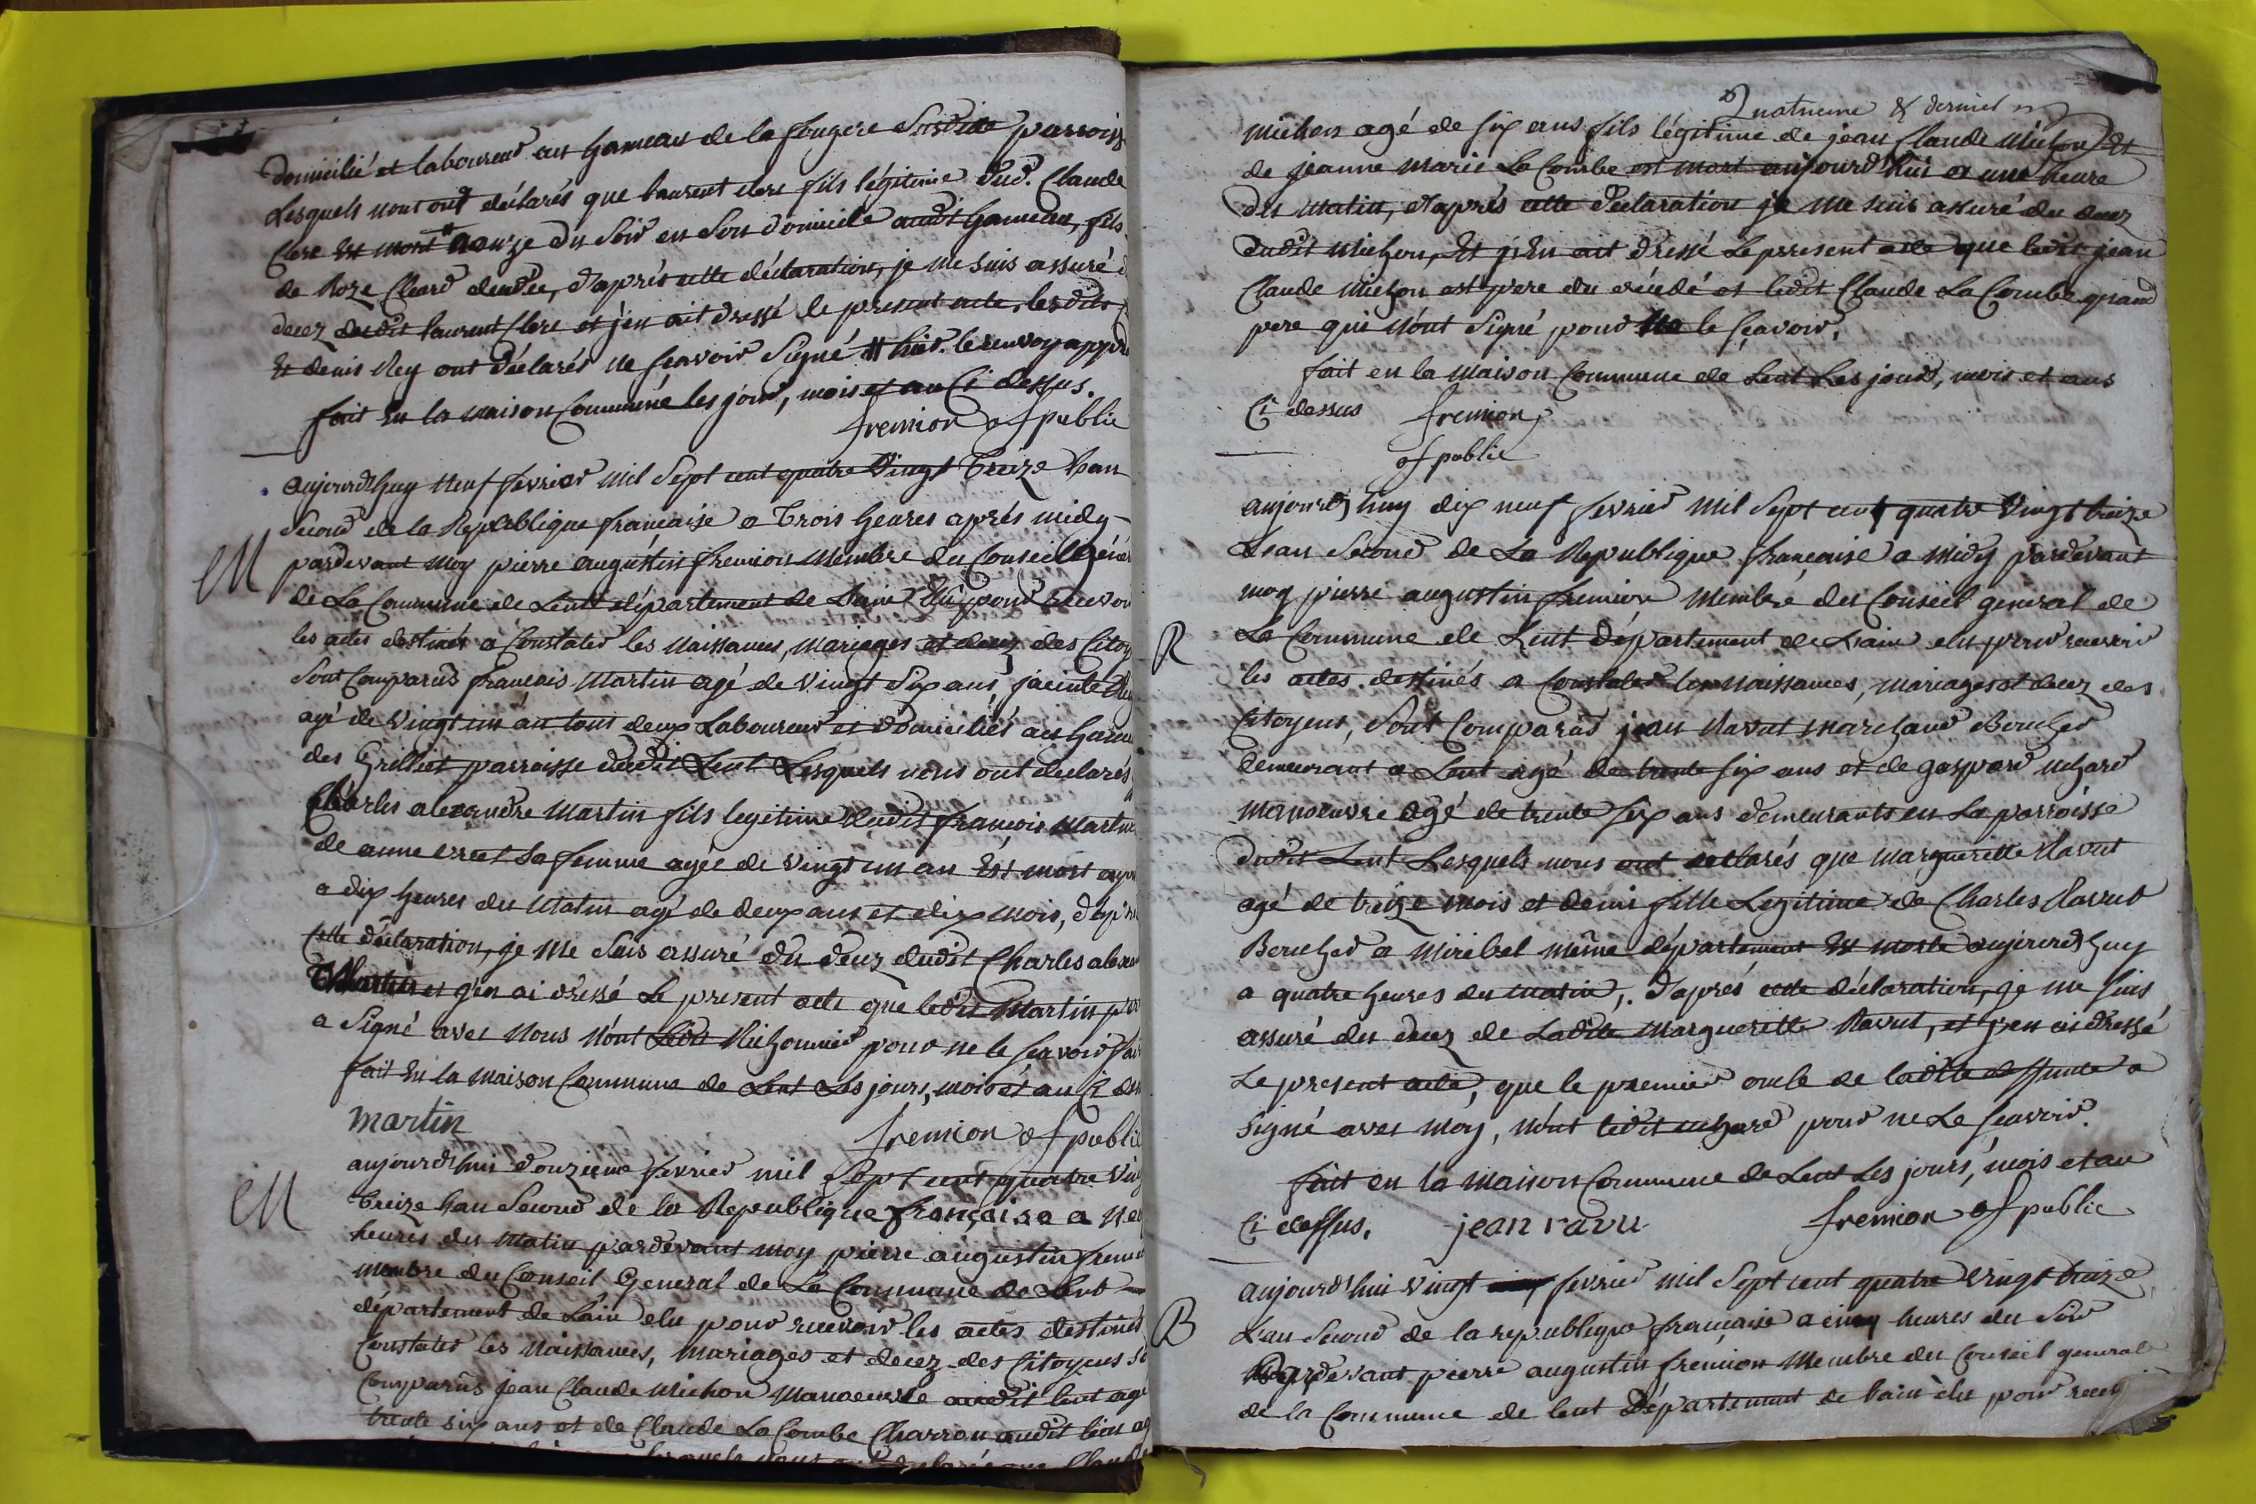 domicilié et laboureur au hameau de la fougere Susdite parroisse
Lesquels nont ont déclarés que laurent clere fils légitime dud. Claude
Clere Est mort # a onze du Soir en Son domicile audit hameau, fils
de Roze Cleard decedee, d'aprés cette déclaration, je me suis assuré
decez dudit laurent Clere et j'en ait dressé le present acte, lesdits
Et denis Rey ont déclarés ne scavoir Signé # hier. le renvoy appr
fait En la maison Commune les jour, mois et an Ci dessus.
fremion of public
aujourdhuy neuf fevrier mil Sept cent quatre Vingt treize Lan
Second de la Republique francaise a trois heures aprés midy
pardevant moy pierre augustin fremion Membre du Conseil Géné
de La Commune de Lent département de Lain Elû pour recevoir
les actes destinés a Constater les naissances, mariages et decez des Citoy
Sont Comparus francois Martin agé de vingt Six ans, jacinte
agé de vingt un án tous deux Laboureur et domiciliés au ham
des Grilliet parroisse dudit Lent Lesquels nous ont declarés
Charles alexandre Martin fils legitime dudit francois Martin
de anne sa femme agée de vingt un an Est mort
a dix heures du matin agé de deux ans et dix mois, d'apres
Cette déclaration, je me Suis assuré du decez dudit Charles alexan
Martin et j'en ai dressé Le present acte que ledit Martin
a Signé avec nous nont ledit pour ne le scavoir
fait En la maison Commune de Lent Les jours, mois et an Ci
martin
fremion of public
EM
aujourdhui douzieme fevrier mil Sept cent quatre vin
treize Lan Second de la Republique françoise a
heures du matin pardevant moy pierre augustin
membre du Conseil General de La Commune de Lent
département de Lain elu pour recevoir les actes destinés
Constater les naissances, mariages et decez des Citoyens
Comparus jean Claude Michon Manoeuvre audit lent agé
trente six ans et de Claude La Combe Charron audit lieu
EM
Quatrieme & dernier
Michon agé de six ans fils légitime de jean Claude Michon Et
de jeanne Marie La Combe est mort aujourd'hui a une heure
du matin, d'aprés cette déclaration je me suis assuré du decez
dudit Michon, Et j'En ait dressé Le present acte que ledit jean
Claude Michon est pere du décédé et ledit Claude La Combe grand
pere qui n'ont Signé pour ne le sçavoir,
fait en la maison Commune de Lent Les jour, mois et ans
Ci dessus fremion
of public
aujourdhuy dix neuf fevrier mil Sept cent quatre Vingt treize
L'an Second de La Republique française a midy pardevant
moy pierre augustin fremion Membre du Conseil general de
La Commune de Lent Département de Lain elu pour recevoir
les actes destinés a Constater les naissances, mariages et decez des
Citoyens, Sont Comparus jean Ravut marchand Boucher
demeurant a Lent agé de trente six ans et de gaspard
manoeuvre agé de trente six ans demeurants en La parroisse
dudit Lent Lesquels nous ont declarés que margueritte Ravut
agé de treize mois et demis fille Legitime de Charles Ravut
Boucher a miribel même département Est morte aujourdhuy
a quatre heures du matin, d'aprés cette déclaration, je me suis
assuré du decez de Ladite marguerite Ravut, et j'en ai dressé
Le present acte, que le premier oncle de ladite deffunte a
Signé avec moy, n'ont ledit pour ne Le scavoir.
fait en la maison Commune de Lent Les jours, mois et an
Ci dessus. jean ravu fremion of public
R
aujourd'hui vingt fevrier mil Sept cent quatre vingt treize
L'an Second de la republique francaise a cinq heures du Soir
Pardevant pierre augustin fremion Membre du Conseil general
de la Commune de lent Département de lain élu pour recev
B